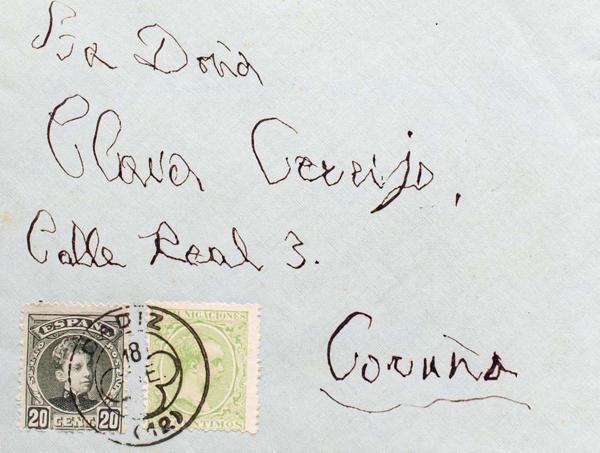 Sra Doña
Clara Cereijo,
Calle Real 3.
Coruña
ESPAÑA
20 CENT. 20
DIZ
18
(12)